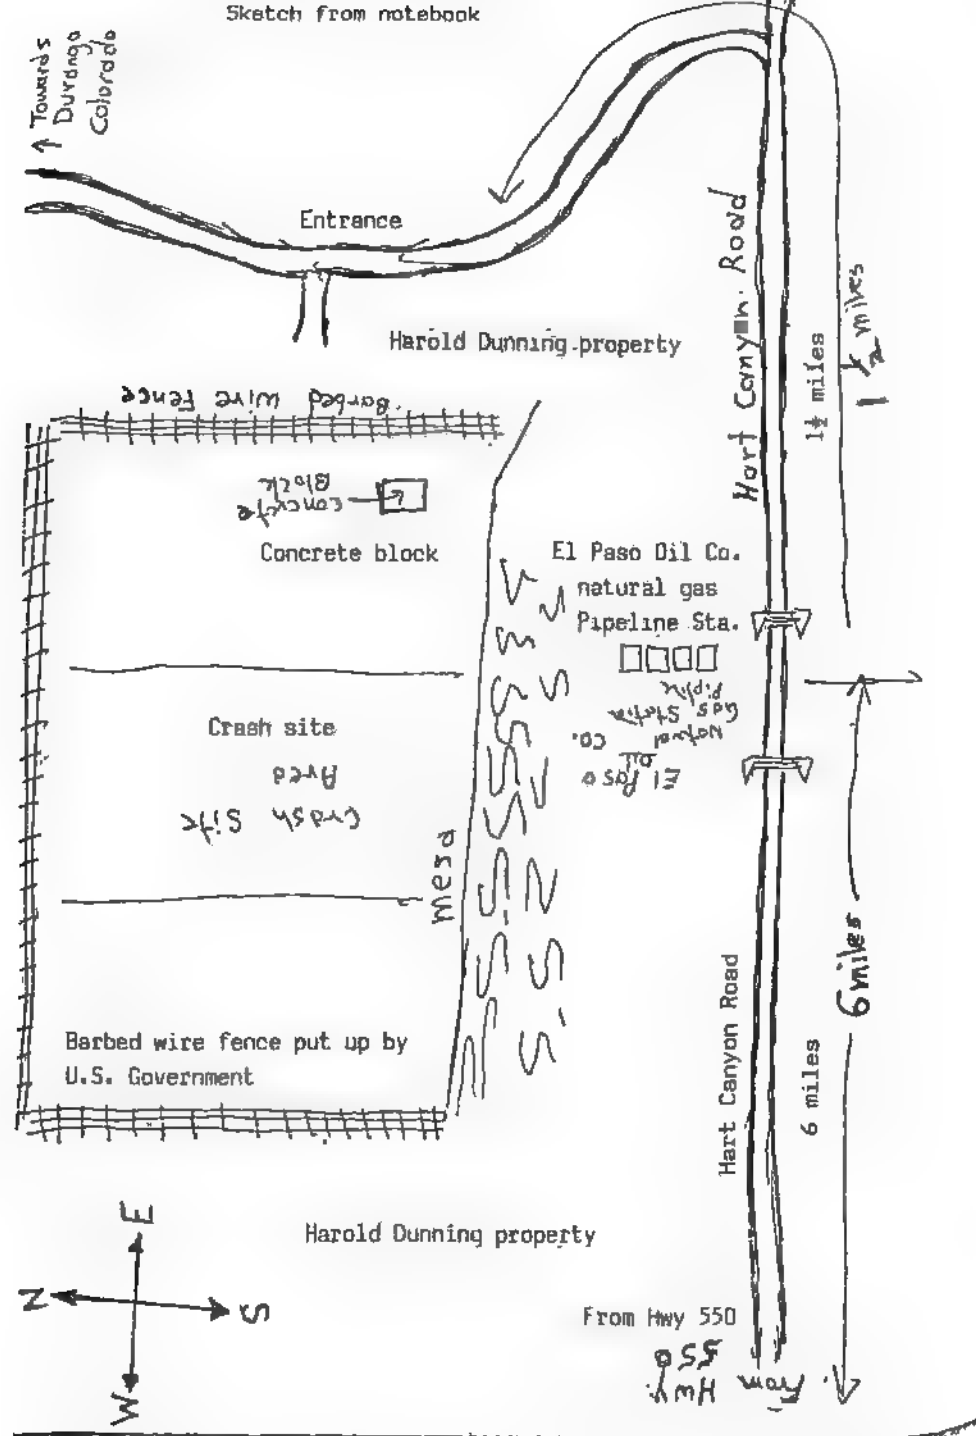 Sketch from notebook
↑ Towards
Durango
Colorado
Entrance
Hart Canyon Road
Harold Dunning property
1½ miles
1½ miles
Barbed wire Fence
Concrete
Block
Concrete block
El Paso Oil Co.
natural gas
Pipeline Sta.
El Paso
Oil Co.
Natural
Gas Station
Crash site
Crash Site
Area
mesa
6 miles
Hart Canyon Road
6 miles
Barbed wire fence put up by
U.S. Government
E
N
S
W
Harold Dunning property
From Hwy 550
From Hwy.
550